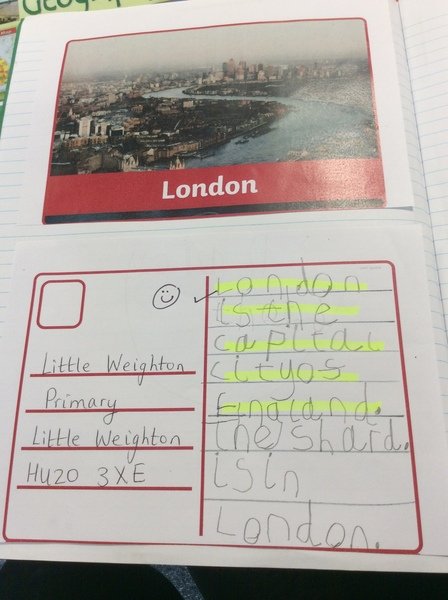 Geography
London
Little Weighton
Primary
Little Weighton
HU20 3XE
London
is the
capital
cityos
England.
the/shard.
is in
London.